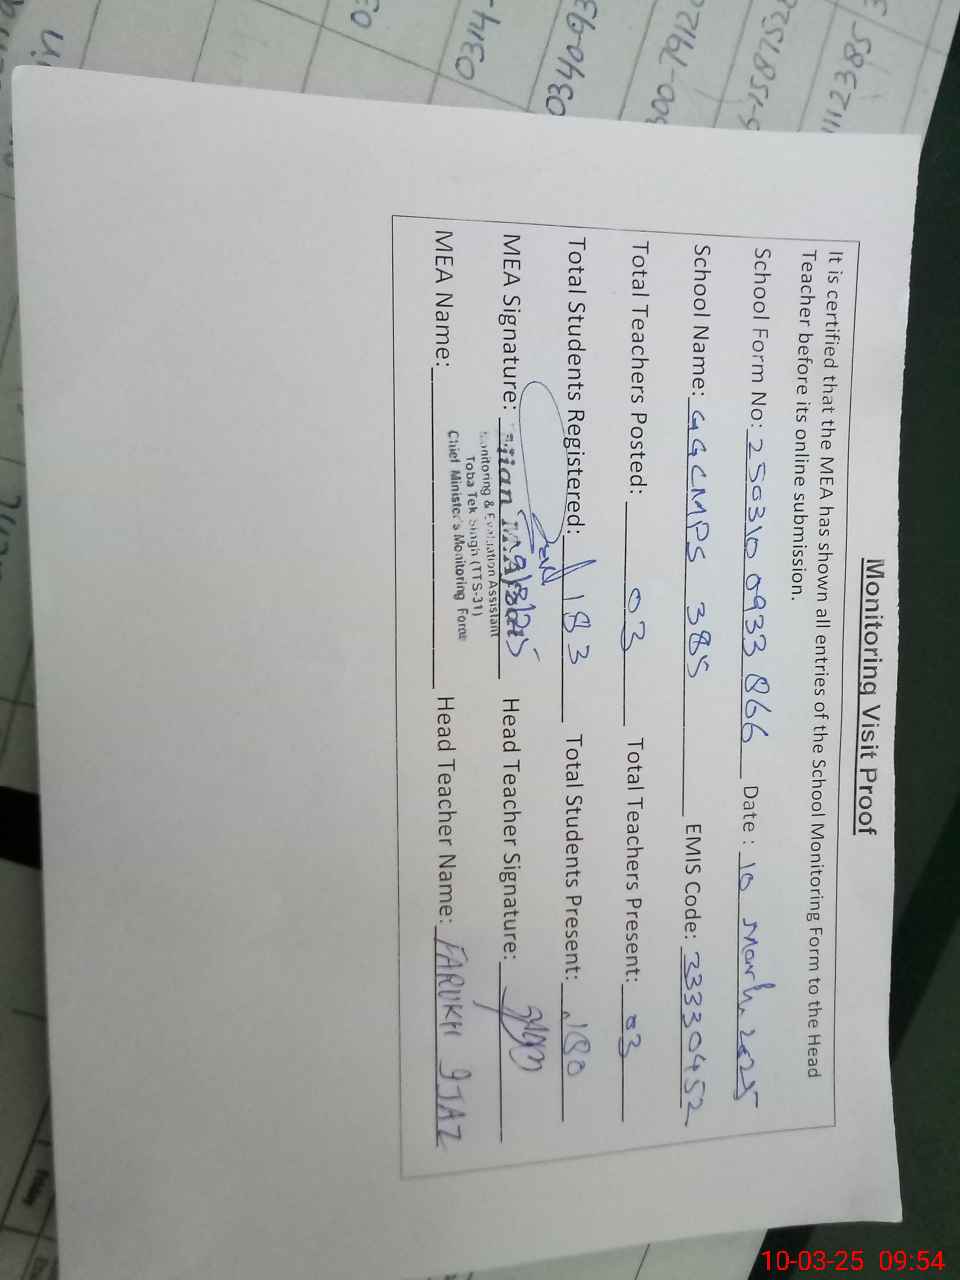 Monitoring Visit Proof
It is certified that the MEA has shown all entries of the School Monitoring Form to the Head
Teacher before its online submission.
School Form No: 250310 0933 866 Date : 10 March 2025
School Name: GGCMPS 385 EMIS Code: 33330452
Total Teachers Posted: 03 Total Teachers Present: 03
Total Students Registered: 183 Total Students Present: 180
MEA Signature: Head Teacher Signature:
Monitoring & Evaluation Assistant
Toba Tek Singh (TTS-31)
Chief Minister's Monitoring Force
MEA Name: Head Teacher Name: FARUKH IJAZ
10-03-25 09:54